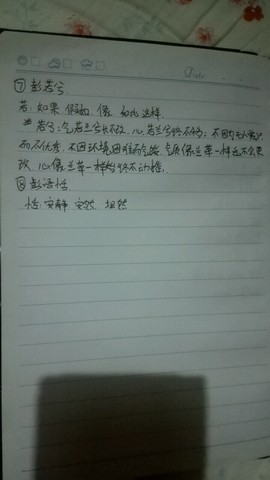 Date
⑦彭若兮
若：如果 假如 像 如此 这样.
若兮：气若兰兮长不改，心若兰兮终不移；不因为无人
而不优秀，不因环境困难而 气质像兰草一样永不会更
改，心像兰草一样始终不动摇.
⑧彭语恬
恬：安静 安然 坦然